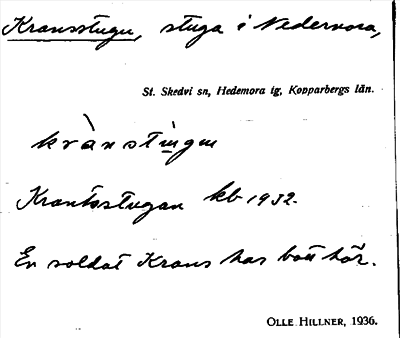 Kransstugu, stuga i Nedernora,
St. Skedvi sn, Hedemora tg, Kopparbergs län.
krànstìngu
Krantsstugan kb 1932.
En soldat Krans har bott här.
OLLE HILLNER, 1936.